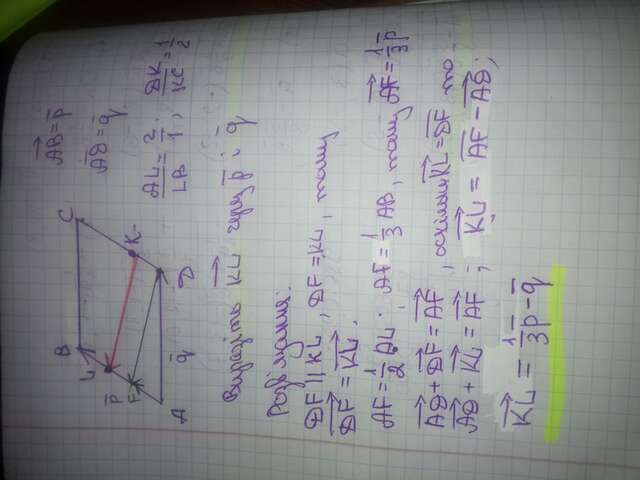 B C
L K
p̄
F
A q̄ D
A͞B⃗ = p̄
A͞D = q̄
AL/LB = 2/1 ; DK/KC = 1/2
Виразіть K͞L⃗ через p̄ і q̄
Розв'язання:
DF || KL, DF = KL, тому
D͞F⃗ = K͞L⃗.
AF = 1/2 AL. AF = 1/3 AB, тому A͞F⃗ = 1/3 p̄
A͞D⃗ + D͞F⃗ = A͞F⃗ , оскільки K͞L⃗ = D͞F⃗ то
A͞D⃗ + K͞L⃗ = A͞F⃗ ; K͞L⃗ = A͞F⃗ - A͞D⃗ ;
K͞L⃗ = 1/3 p̄ - q̄